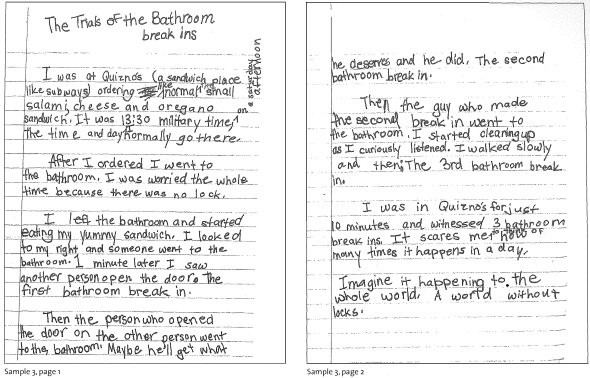 The Trials of the Bathroom
break ins
I was at Quizno's (a sandwich place
like subways) ordering like my normal small
salami, cheese and oregano
sandwich. It was 13:30 military time, on a saturday afternoon
the time and day I normally go there.
After I ordered I went to
the bathroom. I was worried the whole
time because there was no lock.
I left the bathroom and started
eating my yummy sandwich. I looked
to my right and someone went to the
bathroom. 1 minute later I saw
another person open the door. The
first bathroom break in.
Then the person who opened
the door on the other person went
to the bathroom. Maybe he'll get what
Sample 3, page 1
he deserves and he did. The second
bathroom break in.
Then the guy who made
the second break in went to
the bathroom. I started cleaning up
as I curiously listened. I walked slowly
and then, The 3rd bathroom break
in.
I was in Quizno's for just
10 minutes and witnessed 3 bathroom
break ins. It scares me to think of
many times it happens in a day.
Imagine it happening to the
whole world. A world without
locks.
Sample 3, page 2